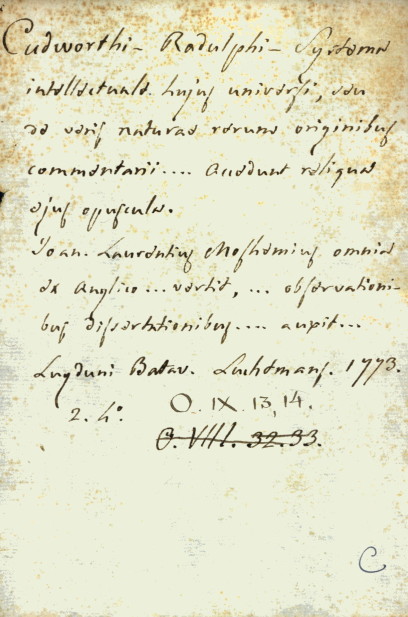 Cudworthi - Radulphi - Systema
intellectuale hujus universi, seu
de veris naturae rerum originibus
commentarii.... Accedunt reliqua
ejus opuscula.
Joan. Laurentius Moshemius omnia
ex Anglico ... vertit, ... observationi-
bus dissertationibus.... auxit...
Lugduni Batav. Luchtmans. 1773.
2. 4°. O. IX. 13, 14.
O. VIII. 32. 33.
C